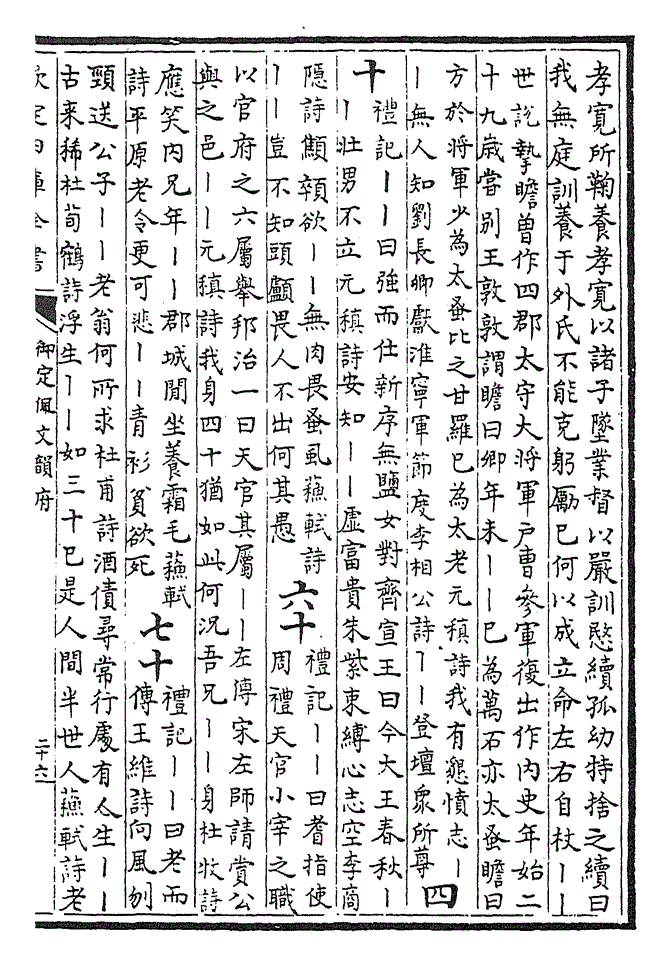 孝寬所鞠養孝寬以諸子墜業督以嚴訓愍續孤幼特捨之續曰
我無庭訓養于外氏不能克躬勵己何以成立命左右自杖丨丨
世說摯瞻曾作四郡太守大將軍戶曹參軍復出作內史年始二
十九歲嘗別王敦敦謂瞻曰卿年未丨丨已為萬石亦太蚤瞻曰
方於將軍少為太蚤比之甘羅已為太老元稹詩我有懇憤志丨
丨無人知劉長卿獻淮寧軍節度李相公詩丨丨登壇衆所尊 四
十 禮記丨丨曰強而仕新序無鹽女對齊宣王曰今大王春秋丨
丨壯男不立元稹詩安知丨丨虛富貴朱紫束縛心志空李商
隱詩顦顇欲丨丨無肉畏蚤虱蘓軾詩
丨丨豈不知頭顱畏人不出何其愚 六十 禮記丨丨曰耆指使
周禮天官小宰之職
以官府之六屬舉邦治一曰天官其屬丨丨左傳宋左師請賞公
與之邑丨丨元稹詩我身四十猶如此何況吾兄丨丨身杜牧詩
應笑內兄年丨丨郡城閒坐養霜毛蘓軾
詩平原老令更可悲丨丨青衫貧欲死 七十 禮記丨丨曰老而
傳王維詩向風刎
頸送公子丨丨老翁何所求杜甫詩酒債尋常行處有人生丨丨
古来稀杜荀鶴詩浮生丨丨如三十已是人間半世人蘓軾詩老
欽定四庫全書
御定佩文韻府
二十六